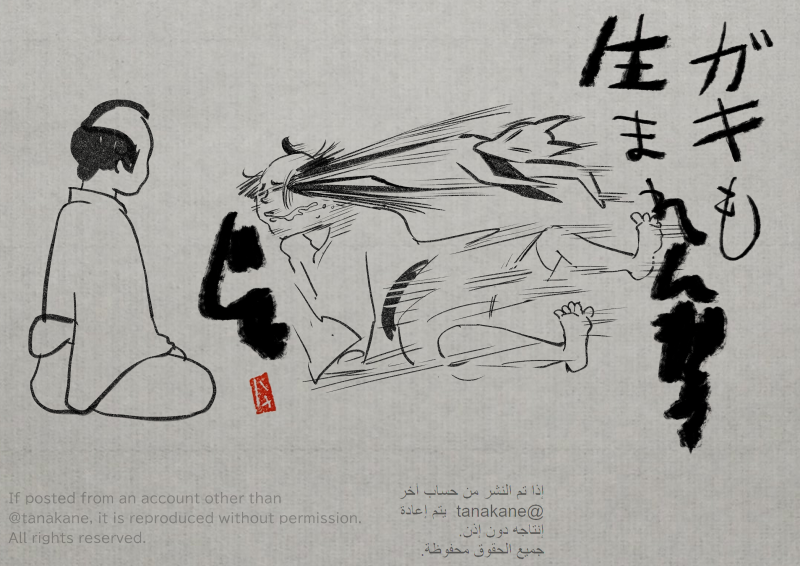 ガキも
生まれん
If posted from an account other than
@tanakane, it is reproduced without permission.
All rights reserved.
إذا تم النشر من حساب آخر
@tanakane يتم إعادة
إنتاجه دون إذن.
جميع الحقوق محفوظة.